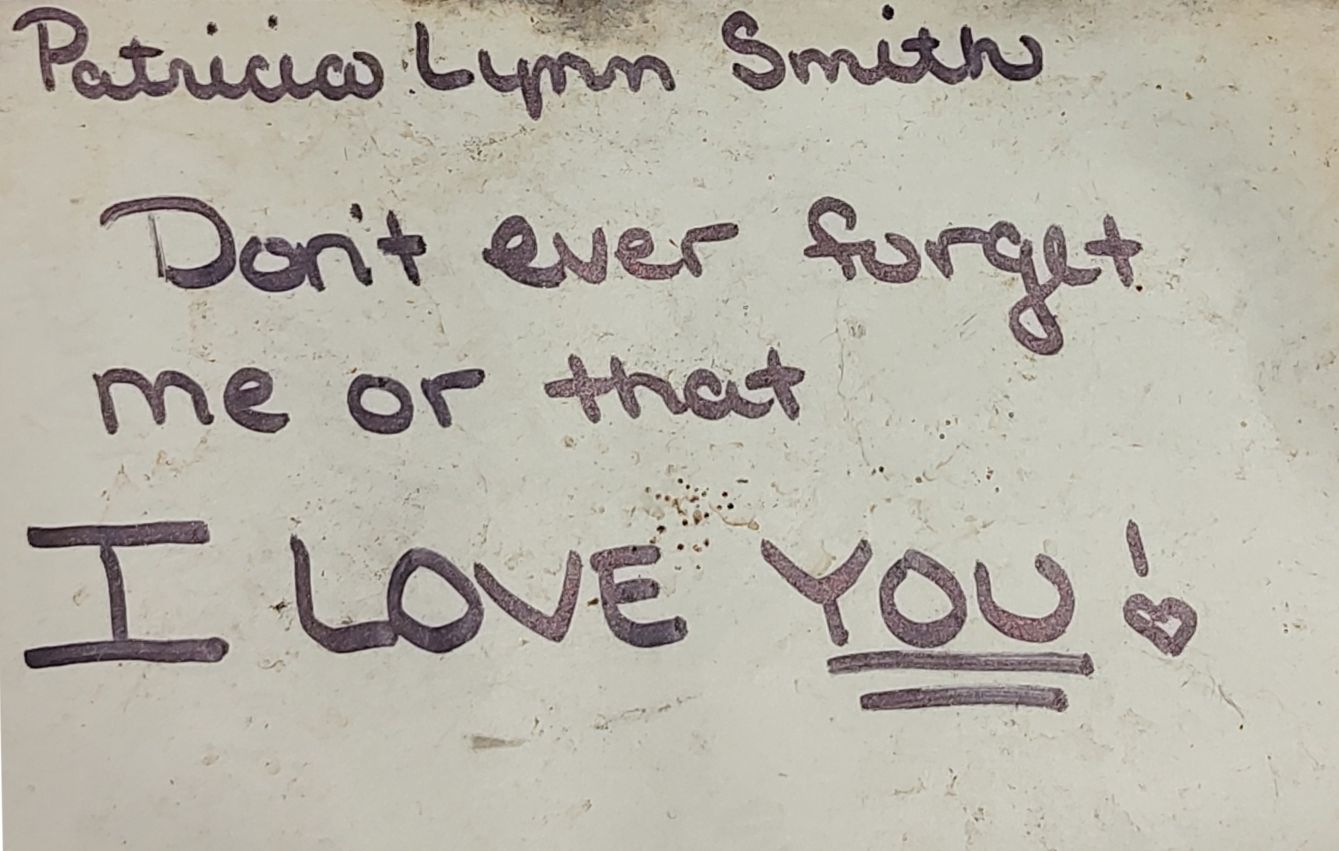 Patricia Lynn Smith
Don't ever forget
me or that
I LOVE YOU!